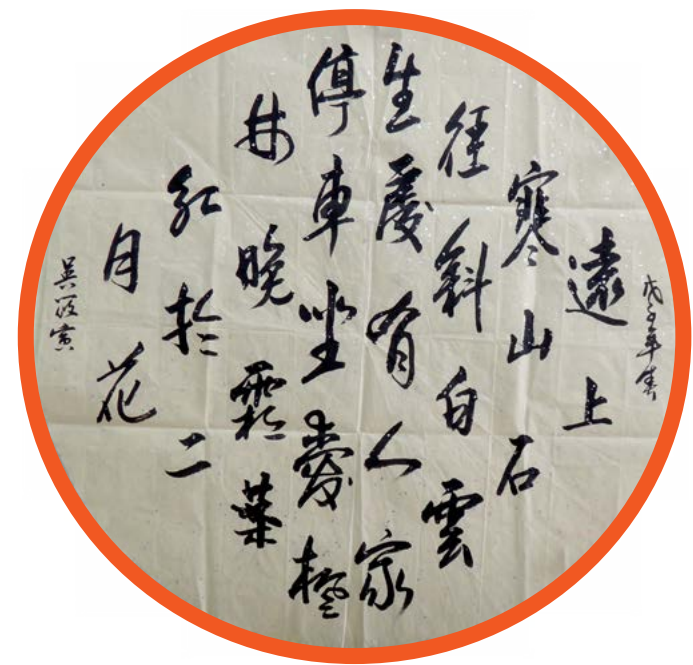 戊子年
遠上
寒山石
徑斜白雲
生處有人家
停車坐愛楓
林晚霜葉
紅於二
月花
吳寅